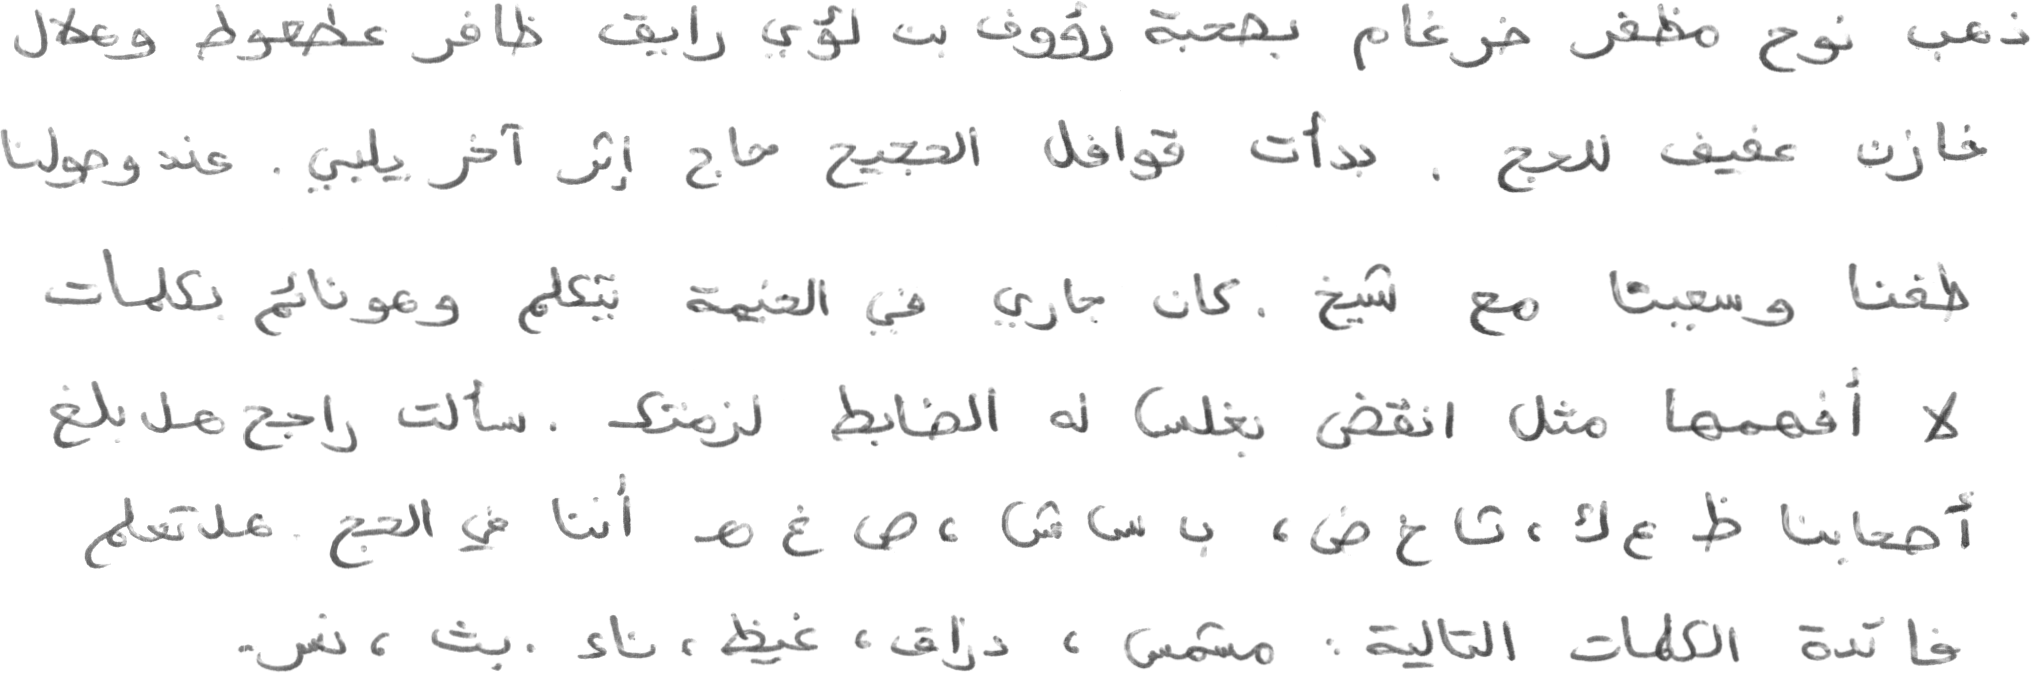 ذهب نوح مظفر ضرغام بصحبة رؤوف بن لؤي رايق ظافر عطعوط وهلال
غازن عفيف للحج . بدأت قوافل الحجيج حاج إثر آخر يلبي . عند وصولنا
طفنا وسعينا مع شيخ . كان جاري في الخيمة يتكلم وهو نائم بكلمات
لا أفهمها مثل انقض بغلس له الضابط لزمنك . سألت راجح هل بلغ
أصحابنا ظ ع ك ، ث خ ض ، ب س ش ، ص غ هـ أننا في الحج . هل تعلم
فائدة الكلمات التالية : مشمس ، دراق ، غيظ ، ناء . بث ، نس .